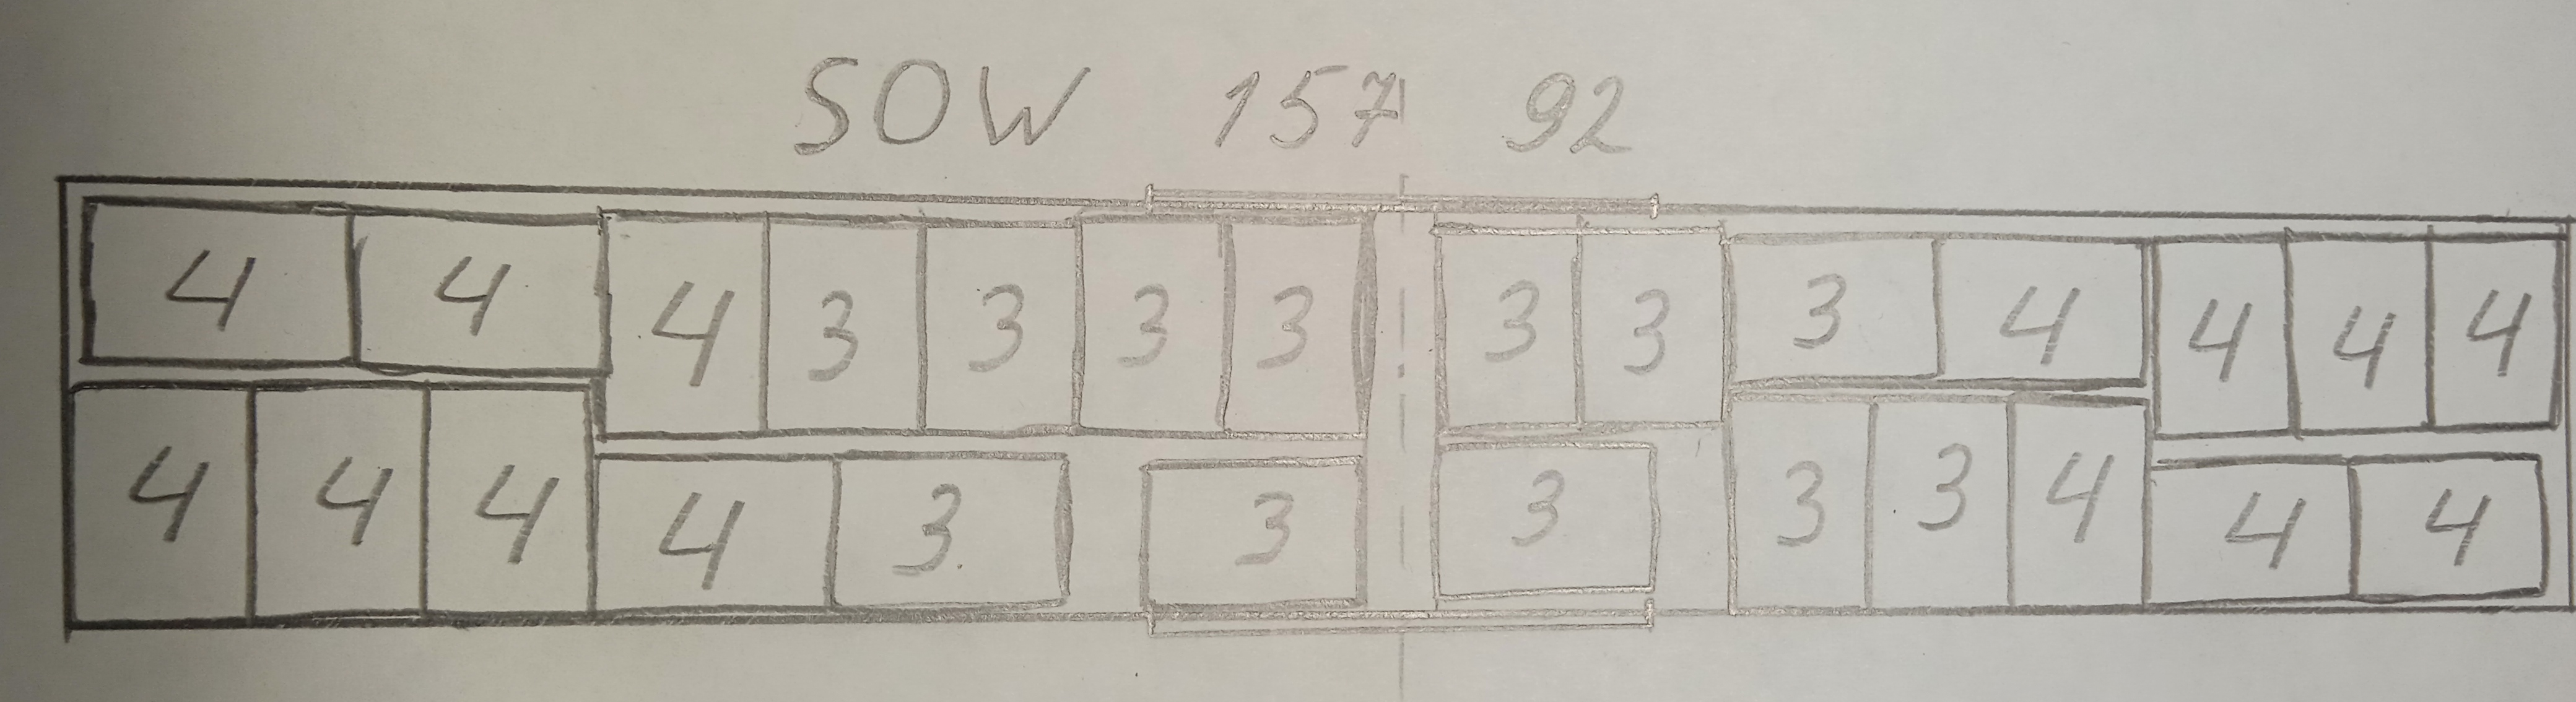 SOW 157 92
4 4 4 3 3 3 3 3 3 3 4 4 4 4
4 4 4 4 3 3 3 3 3 4 4 4